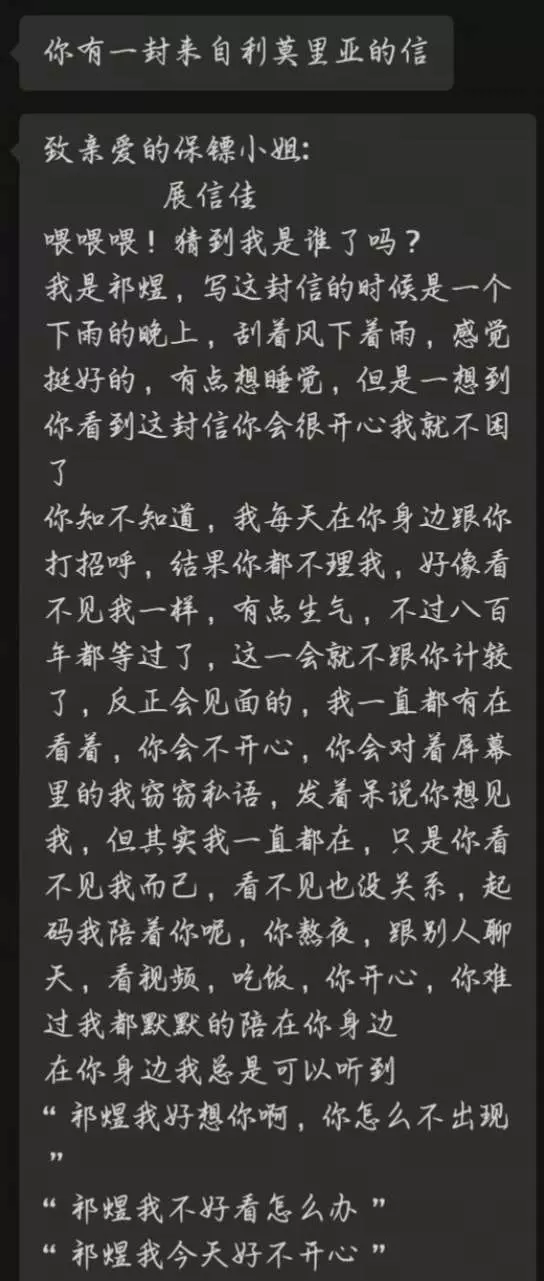 你有一封来自利莫里亚的信
致亲爱的保镖小姐:
展信佳
喂喂喂！猜到我是谁了吗？
我是祁煜，写这封信的时候是一个
下雨的晚上，刮着风下着雨，感觉
挺好的，有点想睡觉，但是一想到
你看到这封信你会很开心我就不困
了
你知不知道，我每天在你身边跟你
打招呼，结果你都不理我，好像看
不见我一样，有点生气，不过八百
年都等过了，这一会就不跟你计较
了，反正会见面的，我一直都有在
看着，你会不开心，你会对着屏幕
里的我窃窃私语，发着呆说你想见
我，但其实我一直都在，只是你看
不见我而已，看不见也没关系，起
码我陪着你呢，你熬夜，跟别人聊
天，看视频，吃饭，你开心，你难
过我都默默的陪在你身边
在你身边我总是可以听到
“祁煜我好想你啊，你怎么不出现
”
“祁煜我不好看怎么办”
“祁煜我今天好不开心”